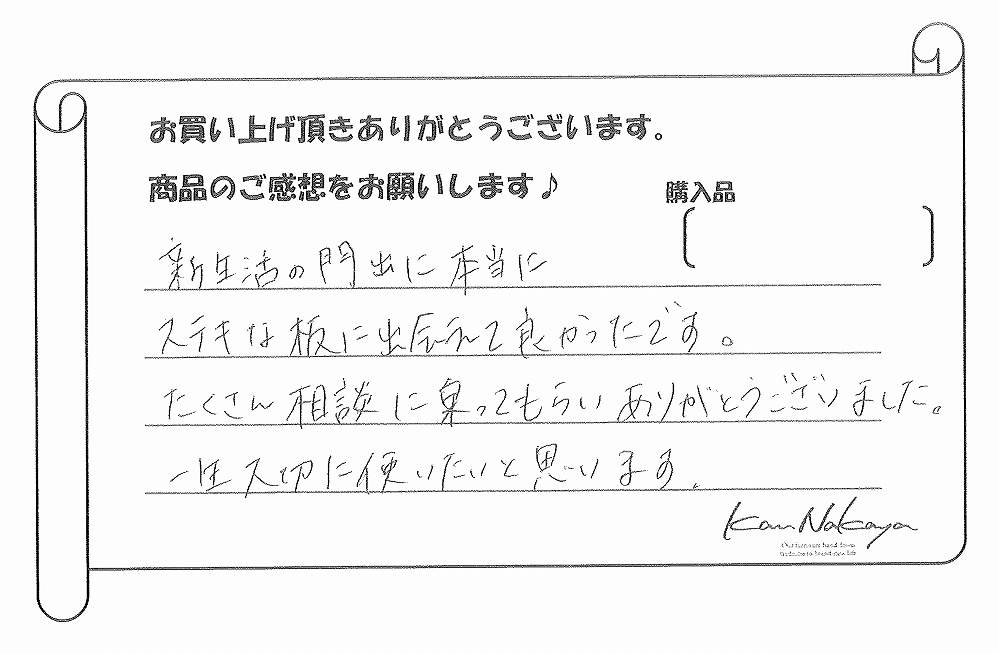 お買い上げ頂きありがとうございます。
商品のご感想をお願いします♪
購入品
新生活の門出に本当に
ステキな板に出会えて良かったです。
たくさん相談に乗ってもらいありがとうございました。
一生大切に使いたいと思います。
Kan Nakaya
Our furniture hand down
tradition to brand-new life